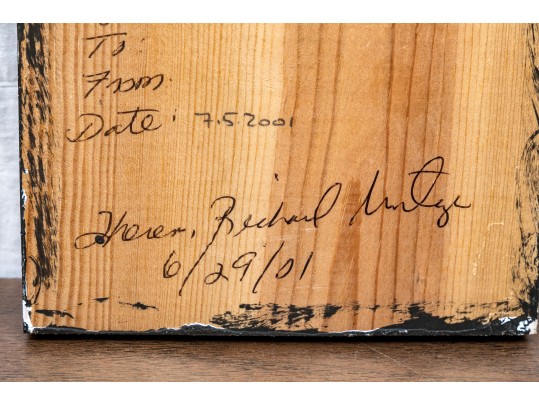 To:
From
Date: 7.5.2001
Richard
6/29/01